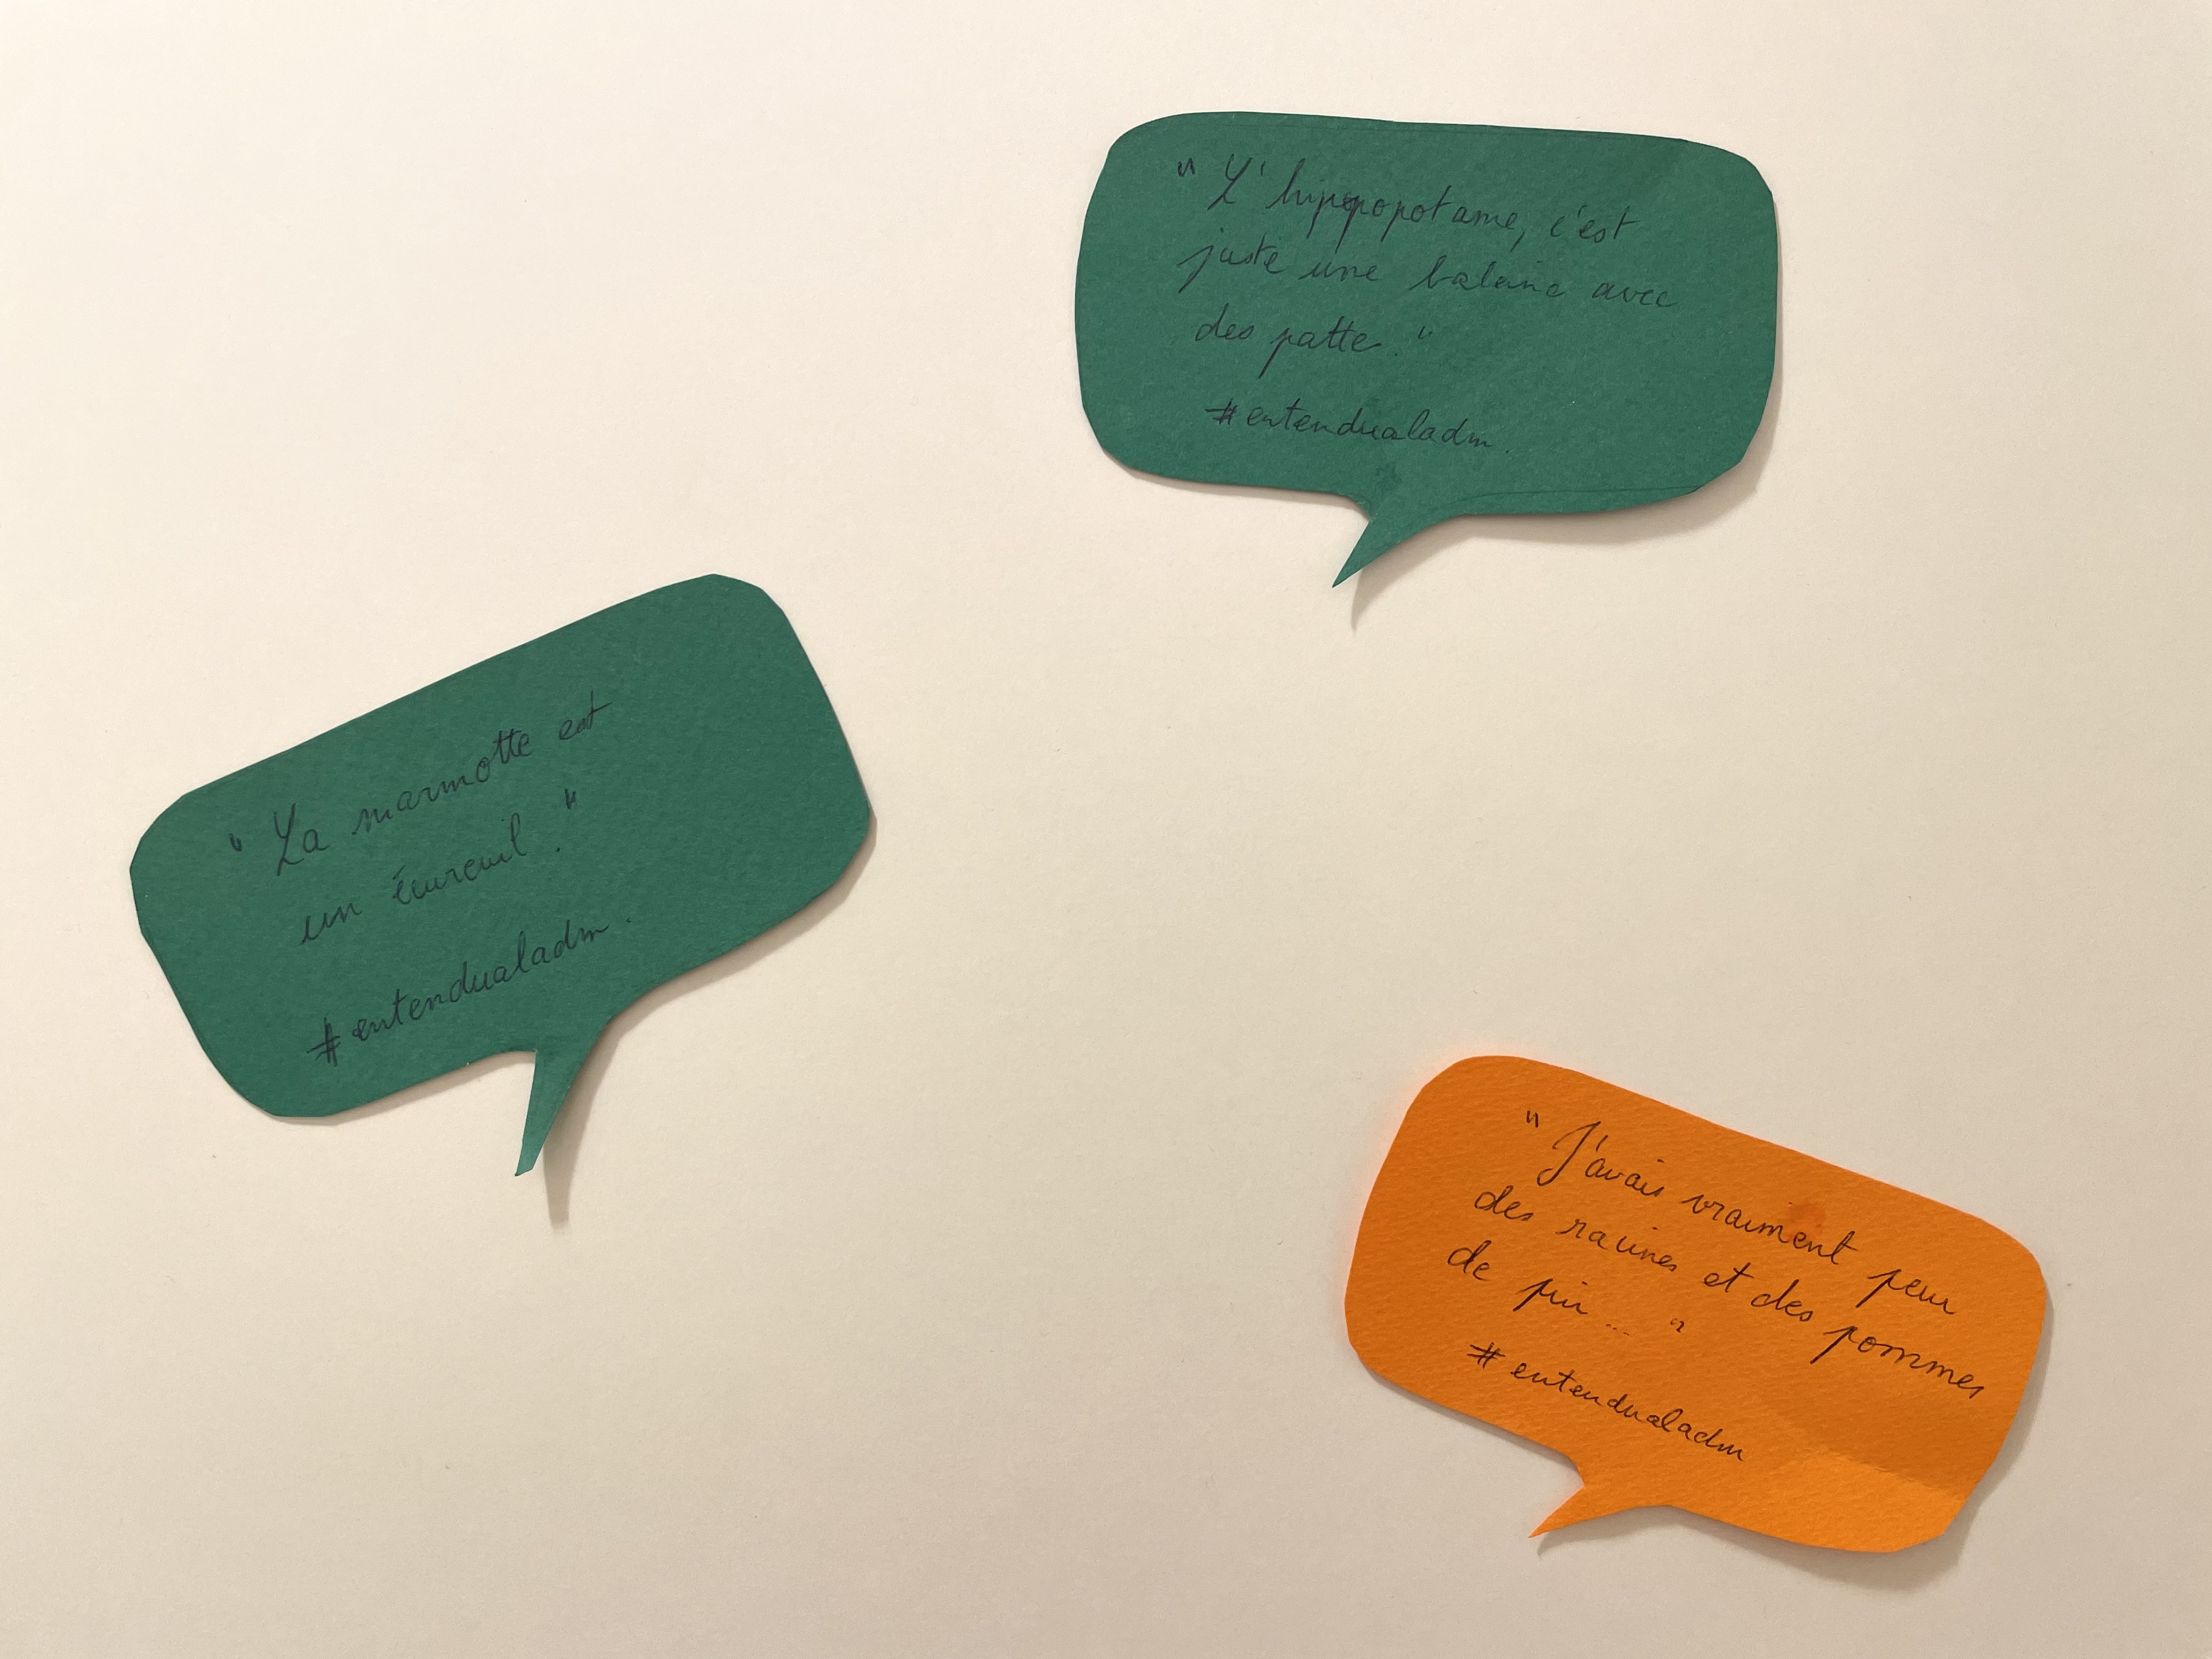 " L'hippopotame, c'est
juste une baleine avec
des patte. "
#entendualadm.
" La marmotte est
un écureuil. "
#entendualadm.
" J'avais vraiment peur
des racines et des pommes
de pin... "
#entendualadm